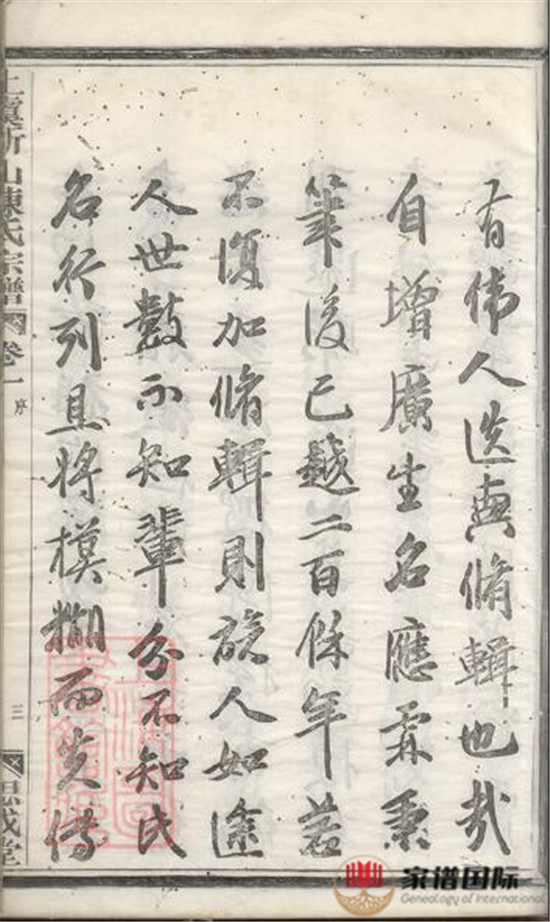 有偉人迭興脩輯也哉
自增廣生名應霖秉
筆後已越二百餘年若
不復加脩輯則族人如途
人世數不知輩分不知氏
名行列且將模糊而失傳
上虞新山陳氏宗譜 卷一 序 三 思成堂
家谱国际
Genealogy of International